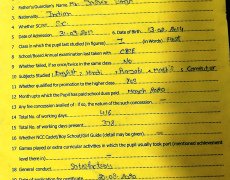 2 Father's/Guardian's Name Mr. Inder Singh
3 Nationality Indian
4 Whether SC/ST S.C.
5 Date of Admission 6 Date of Birth
7 Class in which the pupil last studied (in figures) (in Words) First
8 School/Board Annual examination last taken with CBSE
9 Whether failed, if so once/twice in the same class No
10 Subjects Studied : English Hindi Punjabi Maths Computer
11 Whether qualified for promotion to the higher class Yes
12 Month upto which the Pupil has paid school dues paid March 2020
13 Any fee concession availed of : if so, the nature of such concession
14 Total No. of working days 416
15 Total No. of working days present 378
16 Whether NCC Cadet/Boy Scout/Girl Guide (detail may be given)
17 Games played or extra curricular activities in which the pupil usually took part (mentioned achievement
level there in)
18 General conduct Satisfactory
Date of application for certificate